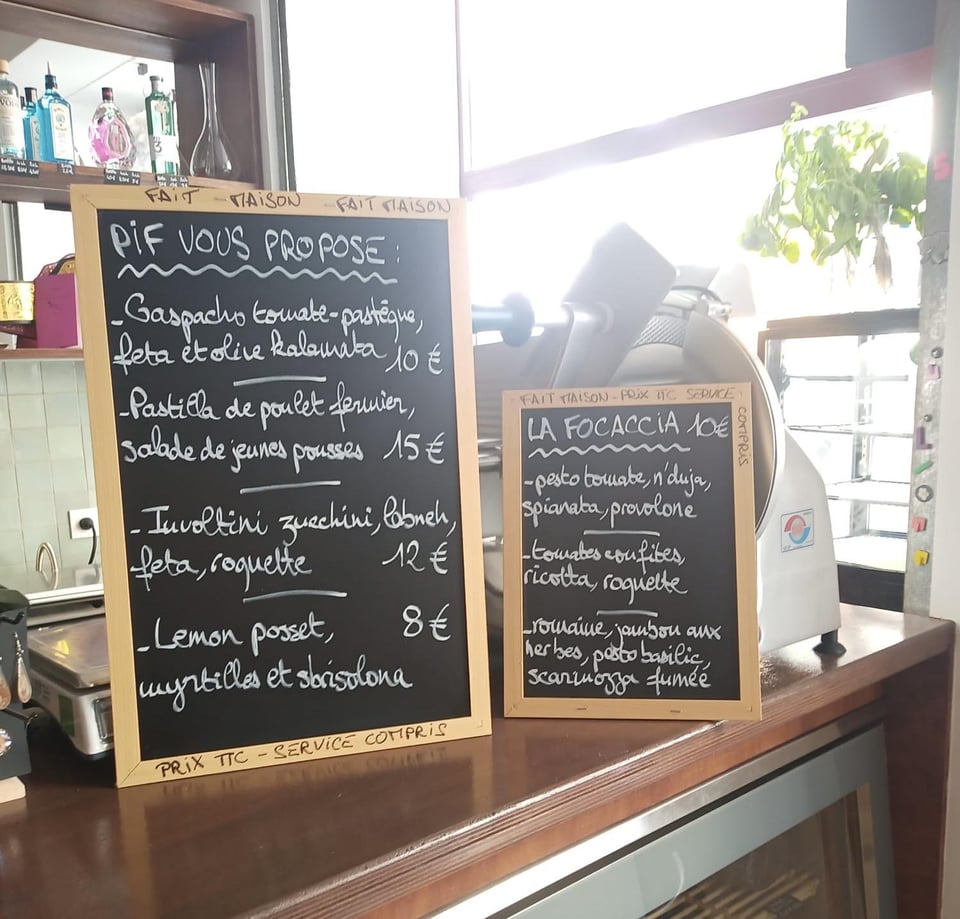 FAIT - MAISON - FAIT MAISON
PIF VOUS PROPOSE :
- Gaspacho tomate-pastèque,
feta et olive kalamata 10 €
- Pastilla de poulet fermier,
salade de jeunes pousses 15 €
- Involtini zucchini, labneh,
feta, roquette 12 €
- Lemon posset, 8 €
myrtilles et sbrisolona
PRIX TTC - SERVICE COMPRIS
FAIT MAISON - PRIX TTC SERVICE
COMPRIS
LA FOCACCIA 10€
- pesto tomate, n'duja,
spianata, provolone
- tomates confites,
ricotta, roquette
- romaine, jambon aux
herbes, pesto basilic,
scarmozza fumée